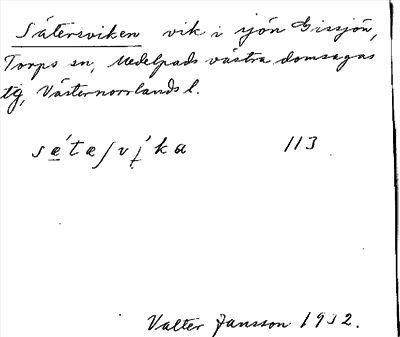 Sätersviken vik i sjön Gissjön,
Torps sn, Medelpads västra domsagas
tg, Västernorrlands l.
sǽtæʃví̢ka 113
Valter Jansson 1932.